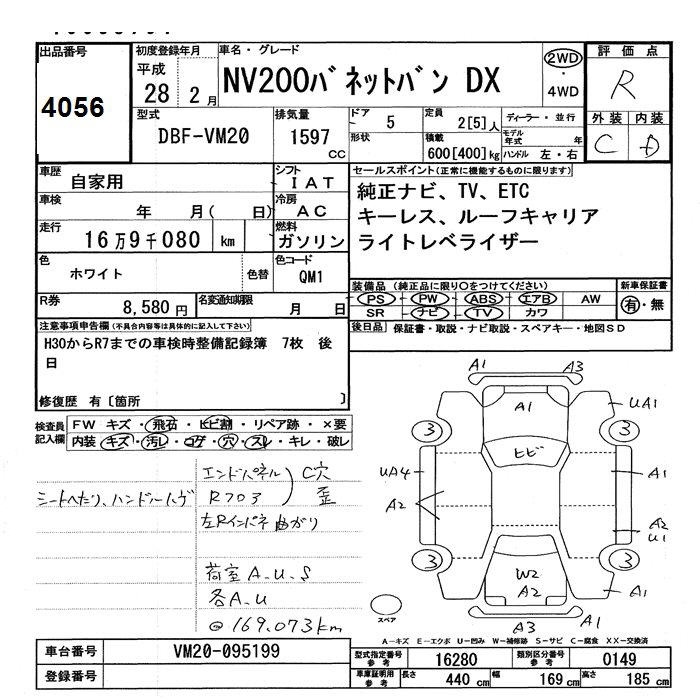 出品番号
4056
初度登録年月
平成
28 2月
車名・グレード
NV200バネットバン DX
2WD
・
4WD
評価点
R
外装 内装
C D
型式
DBF-VM20
排気量
1597
cc
ドア
5
形状
定員
2[5]人
積載
600[400]kg
ディーラー・並行
モデル年式 年
ハンドル 左・右
車歴
自家用
シフト
IAT
車検
年 月( 日)
冷房
AC
走行
16万9千080 km
燃料
ガソリン
色
ホワイト
色替
色コード
QM1
R券
8,580円
名変通知期限
月 日
セールスポイント(正常に機能するものに限ります)
純正ナビ、TV、ETC
キーレス、ルーフキャリア
ライトレベライザー
装備品(純正品に限り○をつけてください)
PS - PW - ABS - エアB - AW
SR - ナビ - TV - カワ
新車保証書
有・無
後日品 保証書・取説・ナビ取説・スペアキー・地図SD
注意事項申告欄(不具合内容等は具体的に記入して下さい)
H30からR7までの車検時整備記録簿 7枚 後
日
修復歴 有[箇所 ]
検査員
記入欄
FW キズ・飛石・ヒビ割・リペア跡・×要
内装・キズ・汚レ・コゲ・穴・スレ・キレ・破レ
シートへたり、ハンドル
エンドパネル C穴
R703 歪
左Rインパネ曲がり
荷室A.U.S
各A.U
@169,073km
A1 A3
A1
UA1
3 3
ヒビ
UA4
A2
A1
A2
U1
3 3
W2
A2
A1
A3 A1
スペア
A-キズ E-エクボ U-凹み W-補修跡 S-サビ C-腐食 XX-交換済
車台番号
VM20-095199
登録番号
型式指定番号
参考
16280
類別区分番号
参考
0149
車庫証明用
参考
長さ 440 cm 幅 169 cm 高さ 185 cm